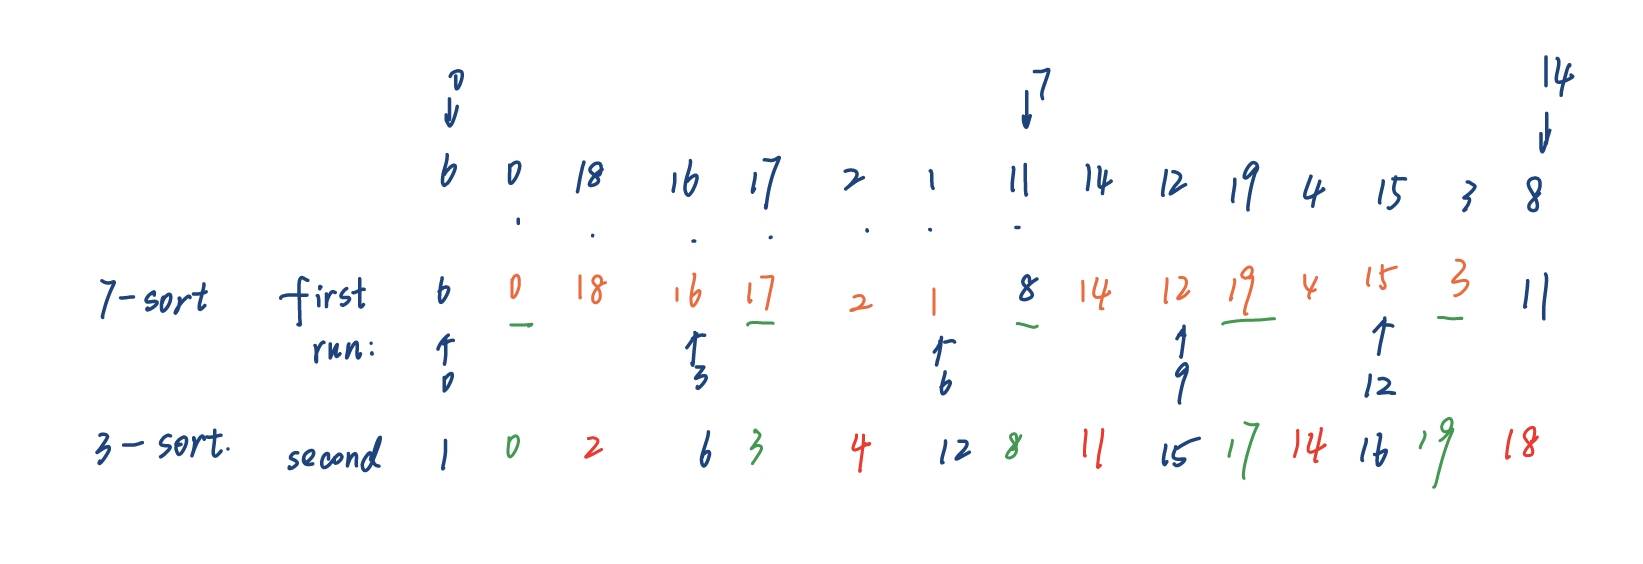 0 7 14
↓ ↓ ↓
6 0 18 16 17 2 1 11 14 12 19 4 15 3 8
7-sort first 6 0 18 16 17 2 1 8 14 12 19 4 15 3 11
run: ↑ ↑ ↑ ↑ ↑
0 3 6 9 12
3-sort. second 1 0 2 6 3 4 12 8 11 15 17 14 16 19 18